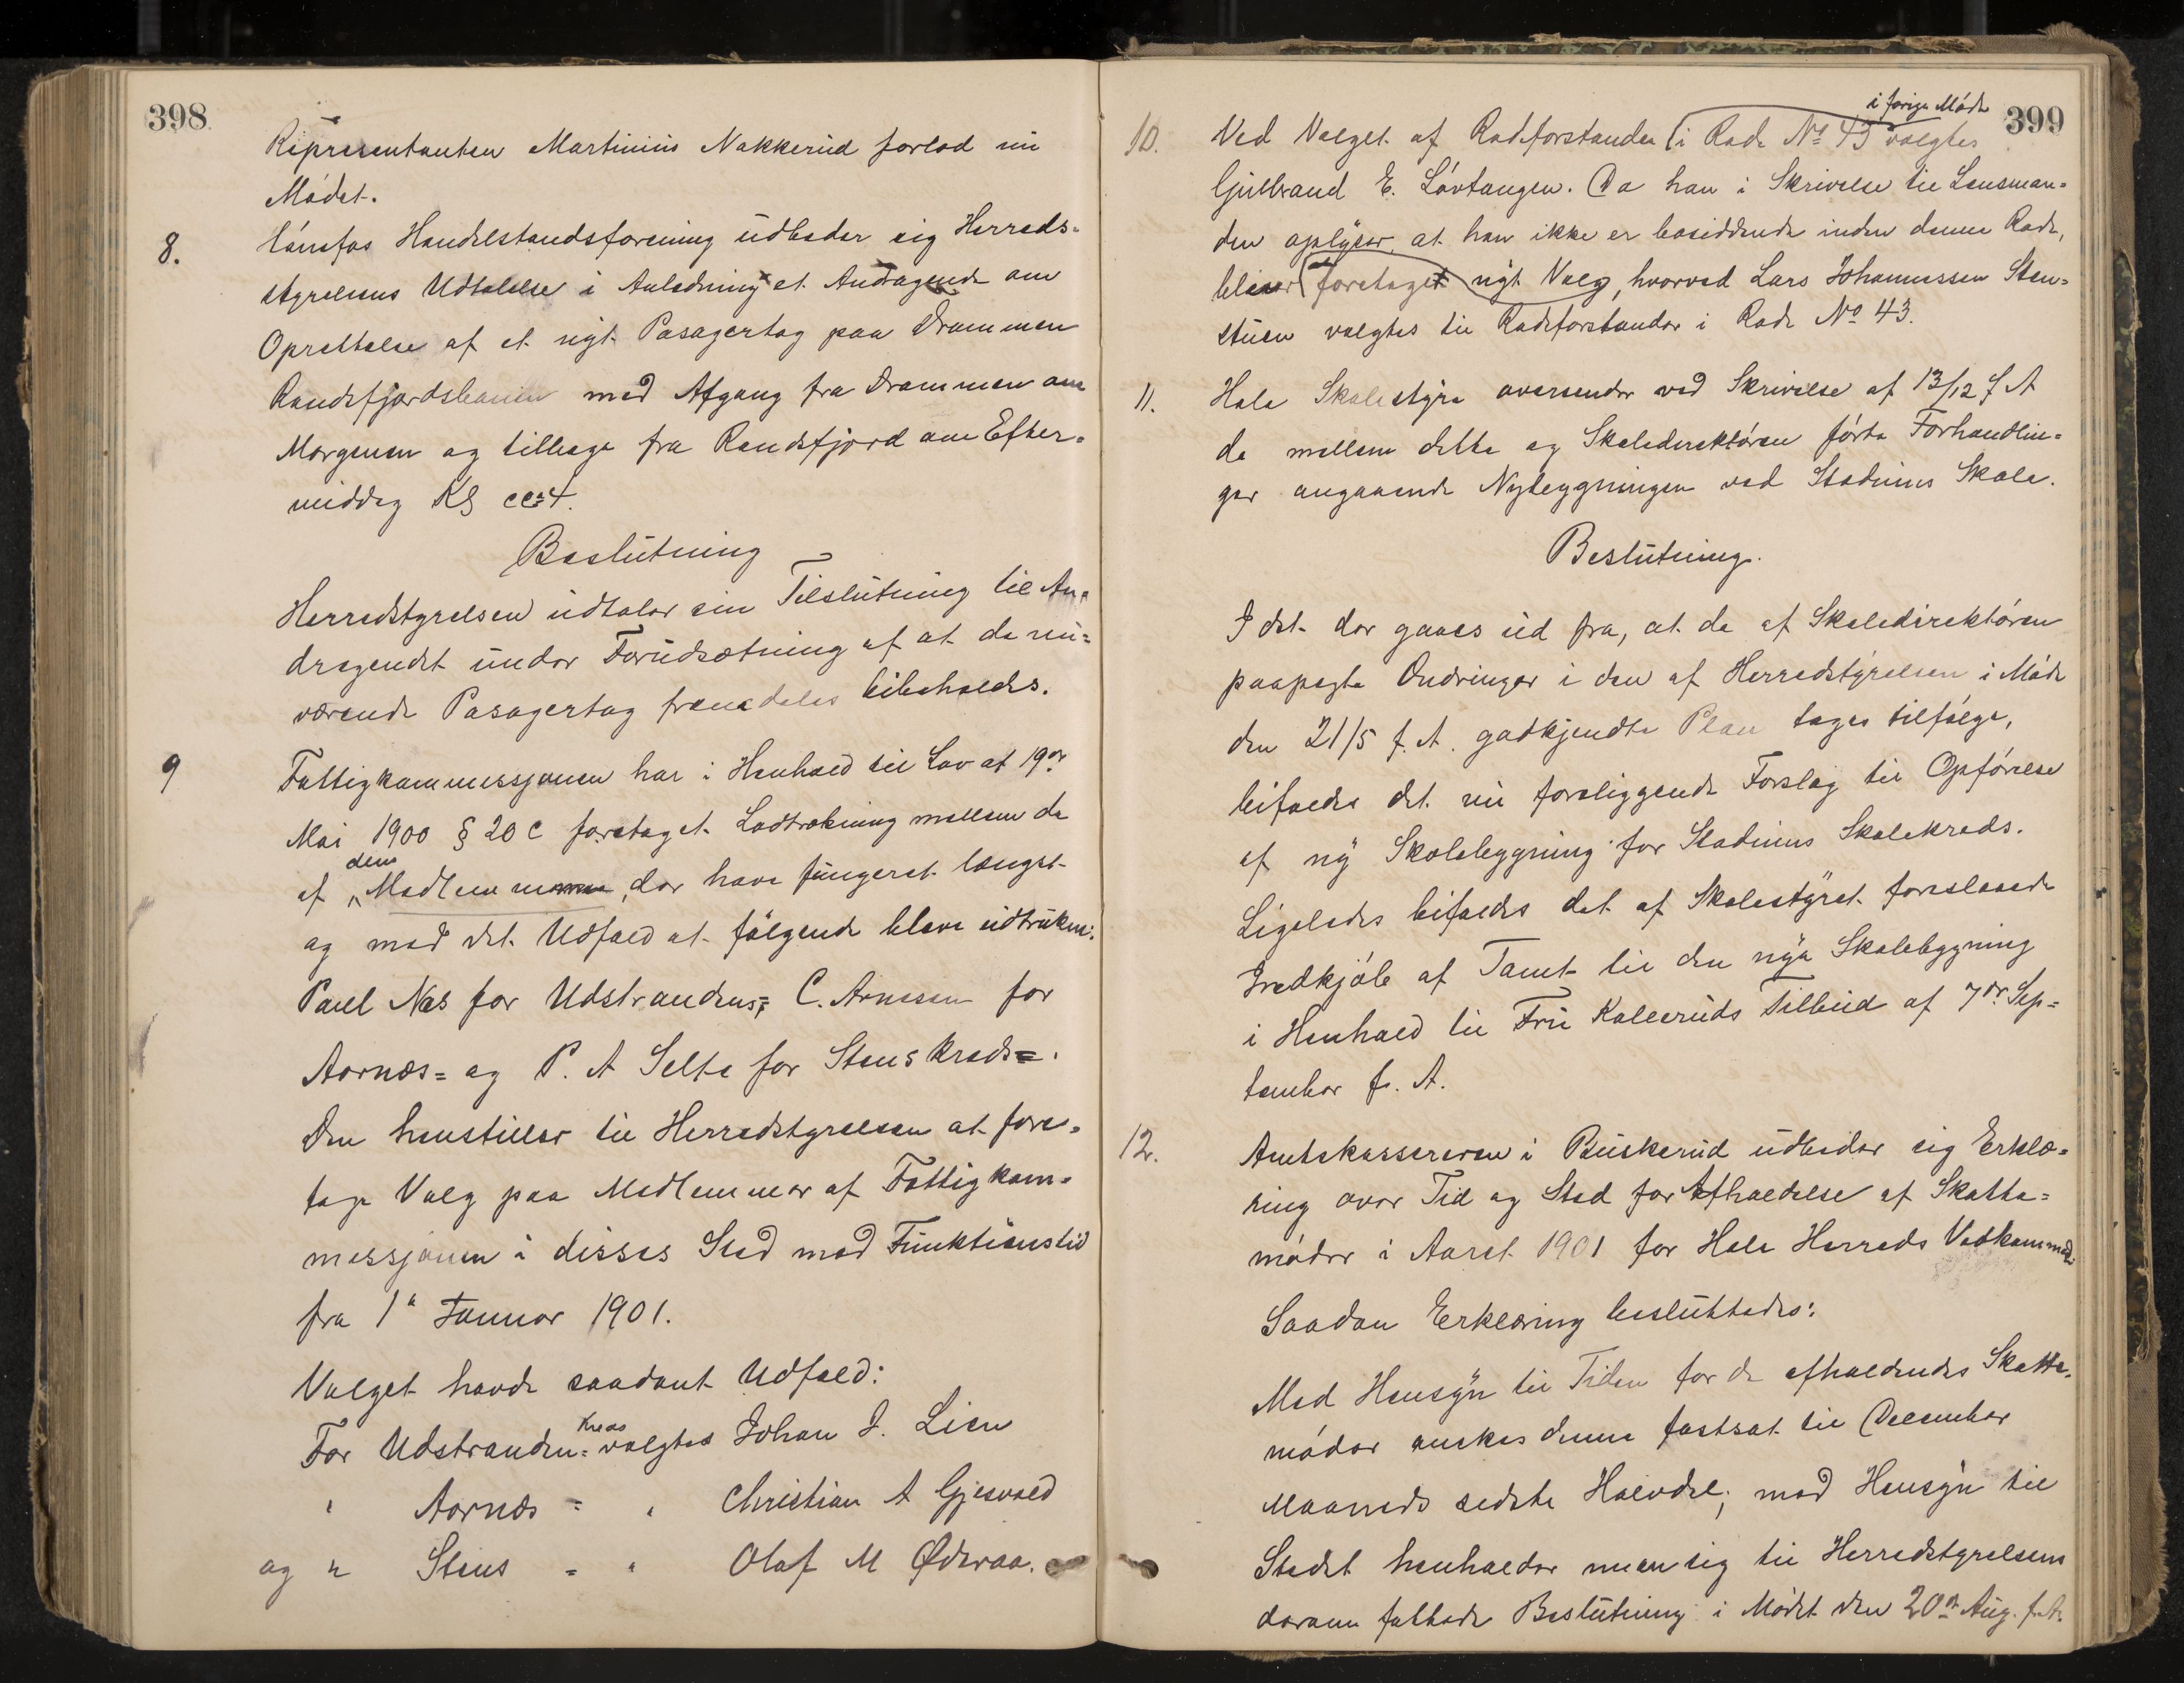 398
Repræsentanten Martinius Nakkerud forlod nu
Mødet.
8. Hønefos Handelstandsforening udbeder sig Herreds-
styrelsens Udtalelse i Anledning et Andragende om
Oprettelse af et nyt Pasagertog paa Drammen
Randsfjordsbanen med Afgang fra Drammen om
Morgenen og tilbage fra Randsfjord om Efter-
middag Kl ca 4.
Beslutning
Herredstyrelsen udtaler sin Tilslutning til An-
dragendet under Forudsætning af at de nu-
værende Pasagertog fremdeles bibeholdes.
9 Fattigkommissjonen har i Henhold til Lov af 19de
Mai 1900 § 20 c foretaget Lodtrækning mellem de
af dens Medlemmer, der have fungeret længst
og med det Udfald at følgende bleve udtrukne:
Paul Næs for Udstrandens, C. Arnesen for
Aornæs- og P. A Selte for Stens Kreds.
Den henstiller til Herredstyrelsen at fore-
tage Valg paa Medlemmer af Fattigkom-
messjonen i disses Sted med Funktionstid
fra 1ste Januar 1901.
Valget havde saadant Udfald:
For Udstranden- Kreds valgtes Johan J. Lien
" Aornæs - " Christian A Gjesvold
og " Stens - " Olaf M Øderaa.
399
i forige Møde
10. Ved Valget af Rodeforstander i Rode No 43 valgtes
Gulbrand E. Løvtangen. Da han i Skrivelse til Lensman-
den oplyser, at han ikke er bosiddende inden denne Rode,
bliver foretaget nyt Valg, hvorved Lars Johannessen Sten-
stuen valgtes til Rodeforstander i Rode No 43.
11. Hole Skolestyre oversender ved Skrivelse af 13/12 f A
de mellem dette og Skoledirektøren førte Forhandlin-
ger angaaende Nybygningen ved Stadums Skole.
Beslutning.
Idet der gaaes ud fra, at de af Skoledirektøren
paapegte Ændringer i den af Herredstyrelsen i Møde
den 21/5 f. A. godkjendte Plan tages tilfølge,
bifaldes det nu foreliggende Forslag til Opførelse
af ny Skolebygning for Stadums Skolekreds.
Ligeledes bifaldes det af Skolestyret foreslaaede
Indkjøb af Tomt til den nye Skolebygning
i Henhold til Fru Kolleruds Tilbud af 7de Sep-
tember f. A.
12. Amtskassereren i Buskerud udbeder sig Erklæ-
ring over Tid og Sted for Afholdelse af Skatte-
møder i Aaret 1901 for Hole Herreds Vedkommende.
Saadan Erklæring besluttedes:
Med Hensyn til Tiden for de afholdendes Skatte-
møder ønskes denne fastsat til December
Maaneds sidste Halvdel; med Hensyn til
Stedet henholder man sig til Herredstyrelsens
derom fattede Beslutning i Mødet den 20de Aug. f. A.